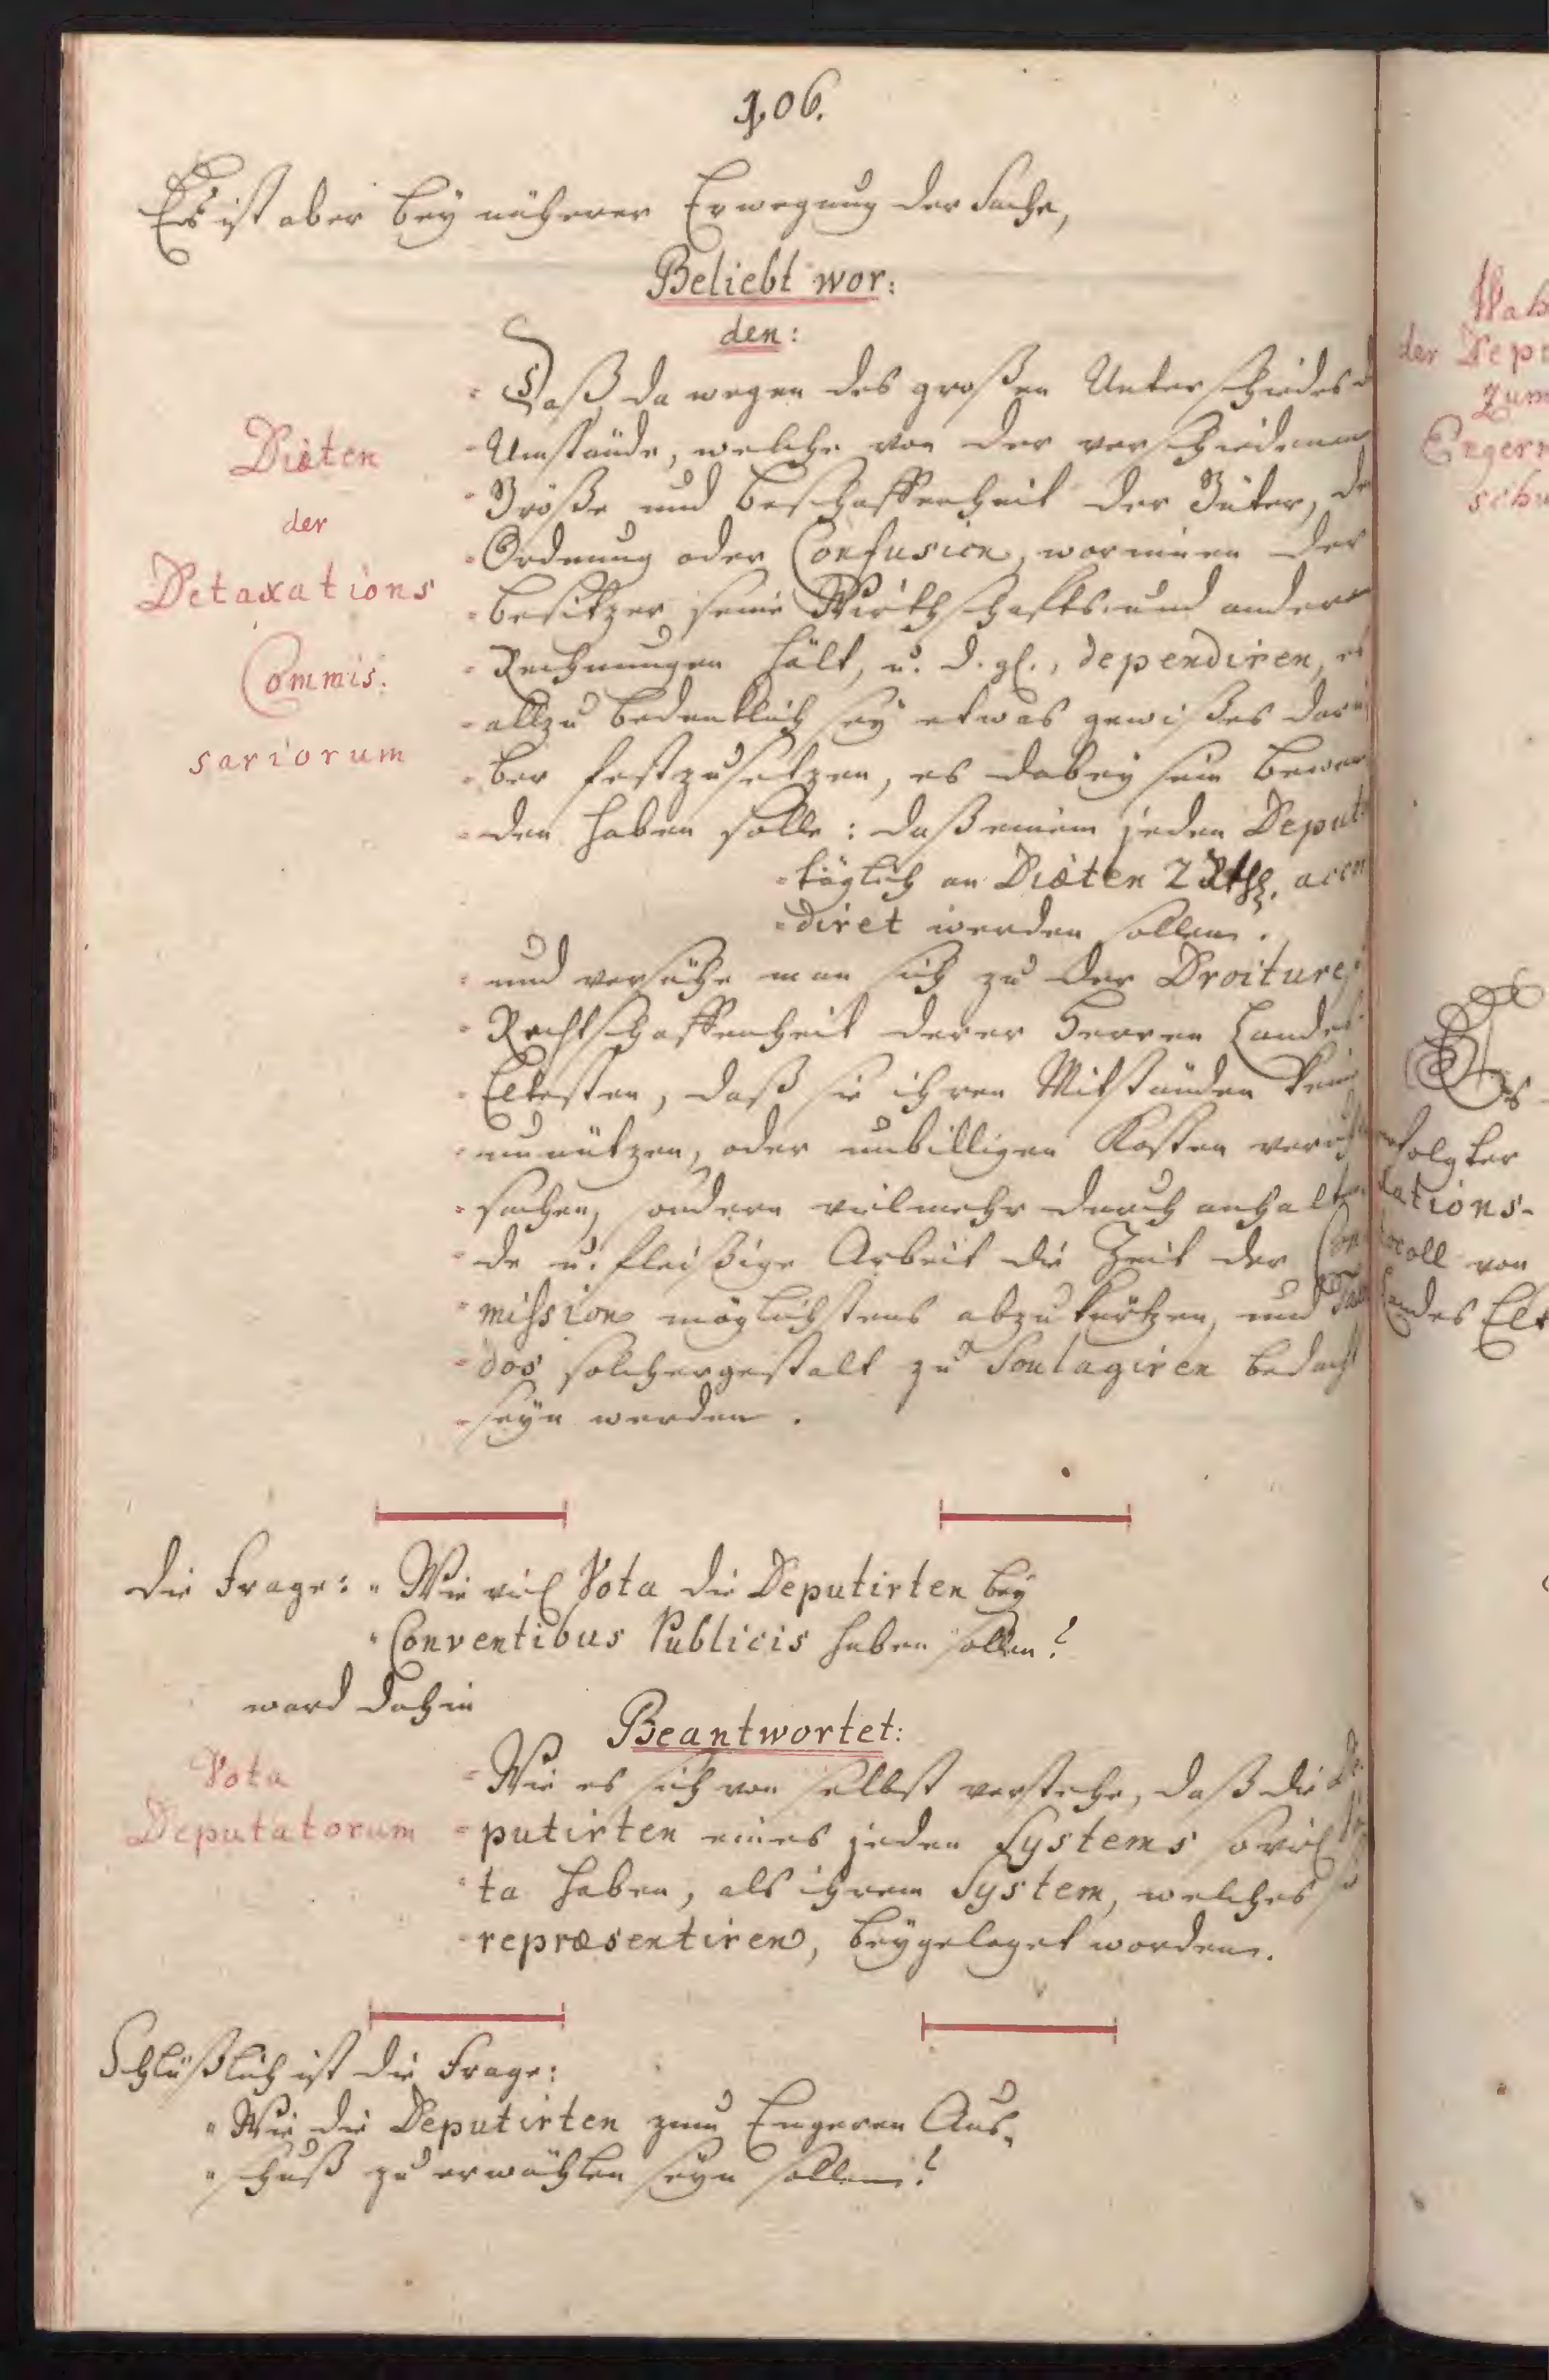 106.
Es ist aber bey näherer Erwegung der Sache,
Beliebt wor:
den:
Daß, da wegen des großen Unterschiedes
Umstände, welche von der verschiedenen
Größe und Beschaffenheit der Güter, der
Ordnung oder Confusion, worinnen der
Besitzer seine Wirthschafts- und andere
Rechnungen hält, u. d. gl., dependiren, es
allzu bedenklich sey etwas gewißes darü
ber festzusetzen, es dabey sein Bewen
den haben solle: daß einem jeden Deput.
täglich an Diæten 2 Rthl. accor
diret werden sollen.
und versähe man sich zu der Droiture,
Rechtschaffenheit derer Herren Landes
Eltesten, daß sie ihren Mitständen keine
unnützen, oder unbilligen Kosten verur
sachen, sondern vielmehr durch anhalten
de u. fleißige Arbeit die Zeit der Com
mission möglichstens abzukürtzen, und
dos solchergestalt zu Soulagiren bedacht
seyn werden.
Diæten
der
Detaxations
Commis:
sariorum
Die Frage: „Wie viel Vota die Deputirten bey
„Conventibus Publicis haben sollen?
ward dahin
Beantwortet:
Wie es sich von selbst verstehe, daß die De
putirten eines jeden Systems soviel Vo
ta haben, als ihrem System, welches sie
repræsentiren, beygeleget worden.
Vota
Deputatorum
Schlüßlich ist die Frage:
„Wie die Deputirten zum Engeren Aus-
„schuß zu erwählen seyn sollen?
der Depu
zum
Engern
schu
Es
folgter
tations-
von
Landes Elt